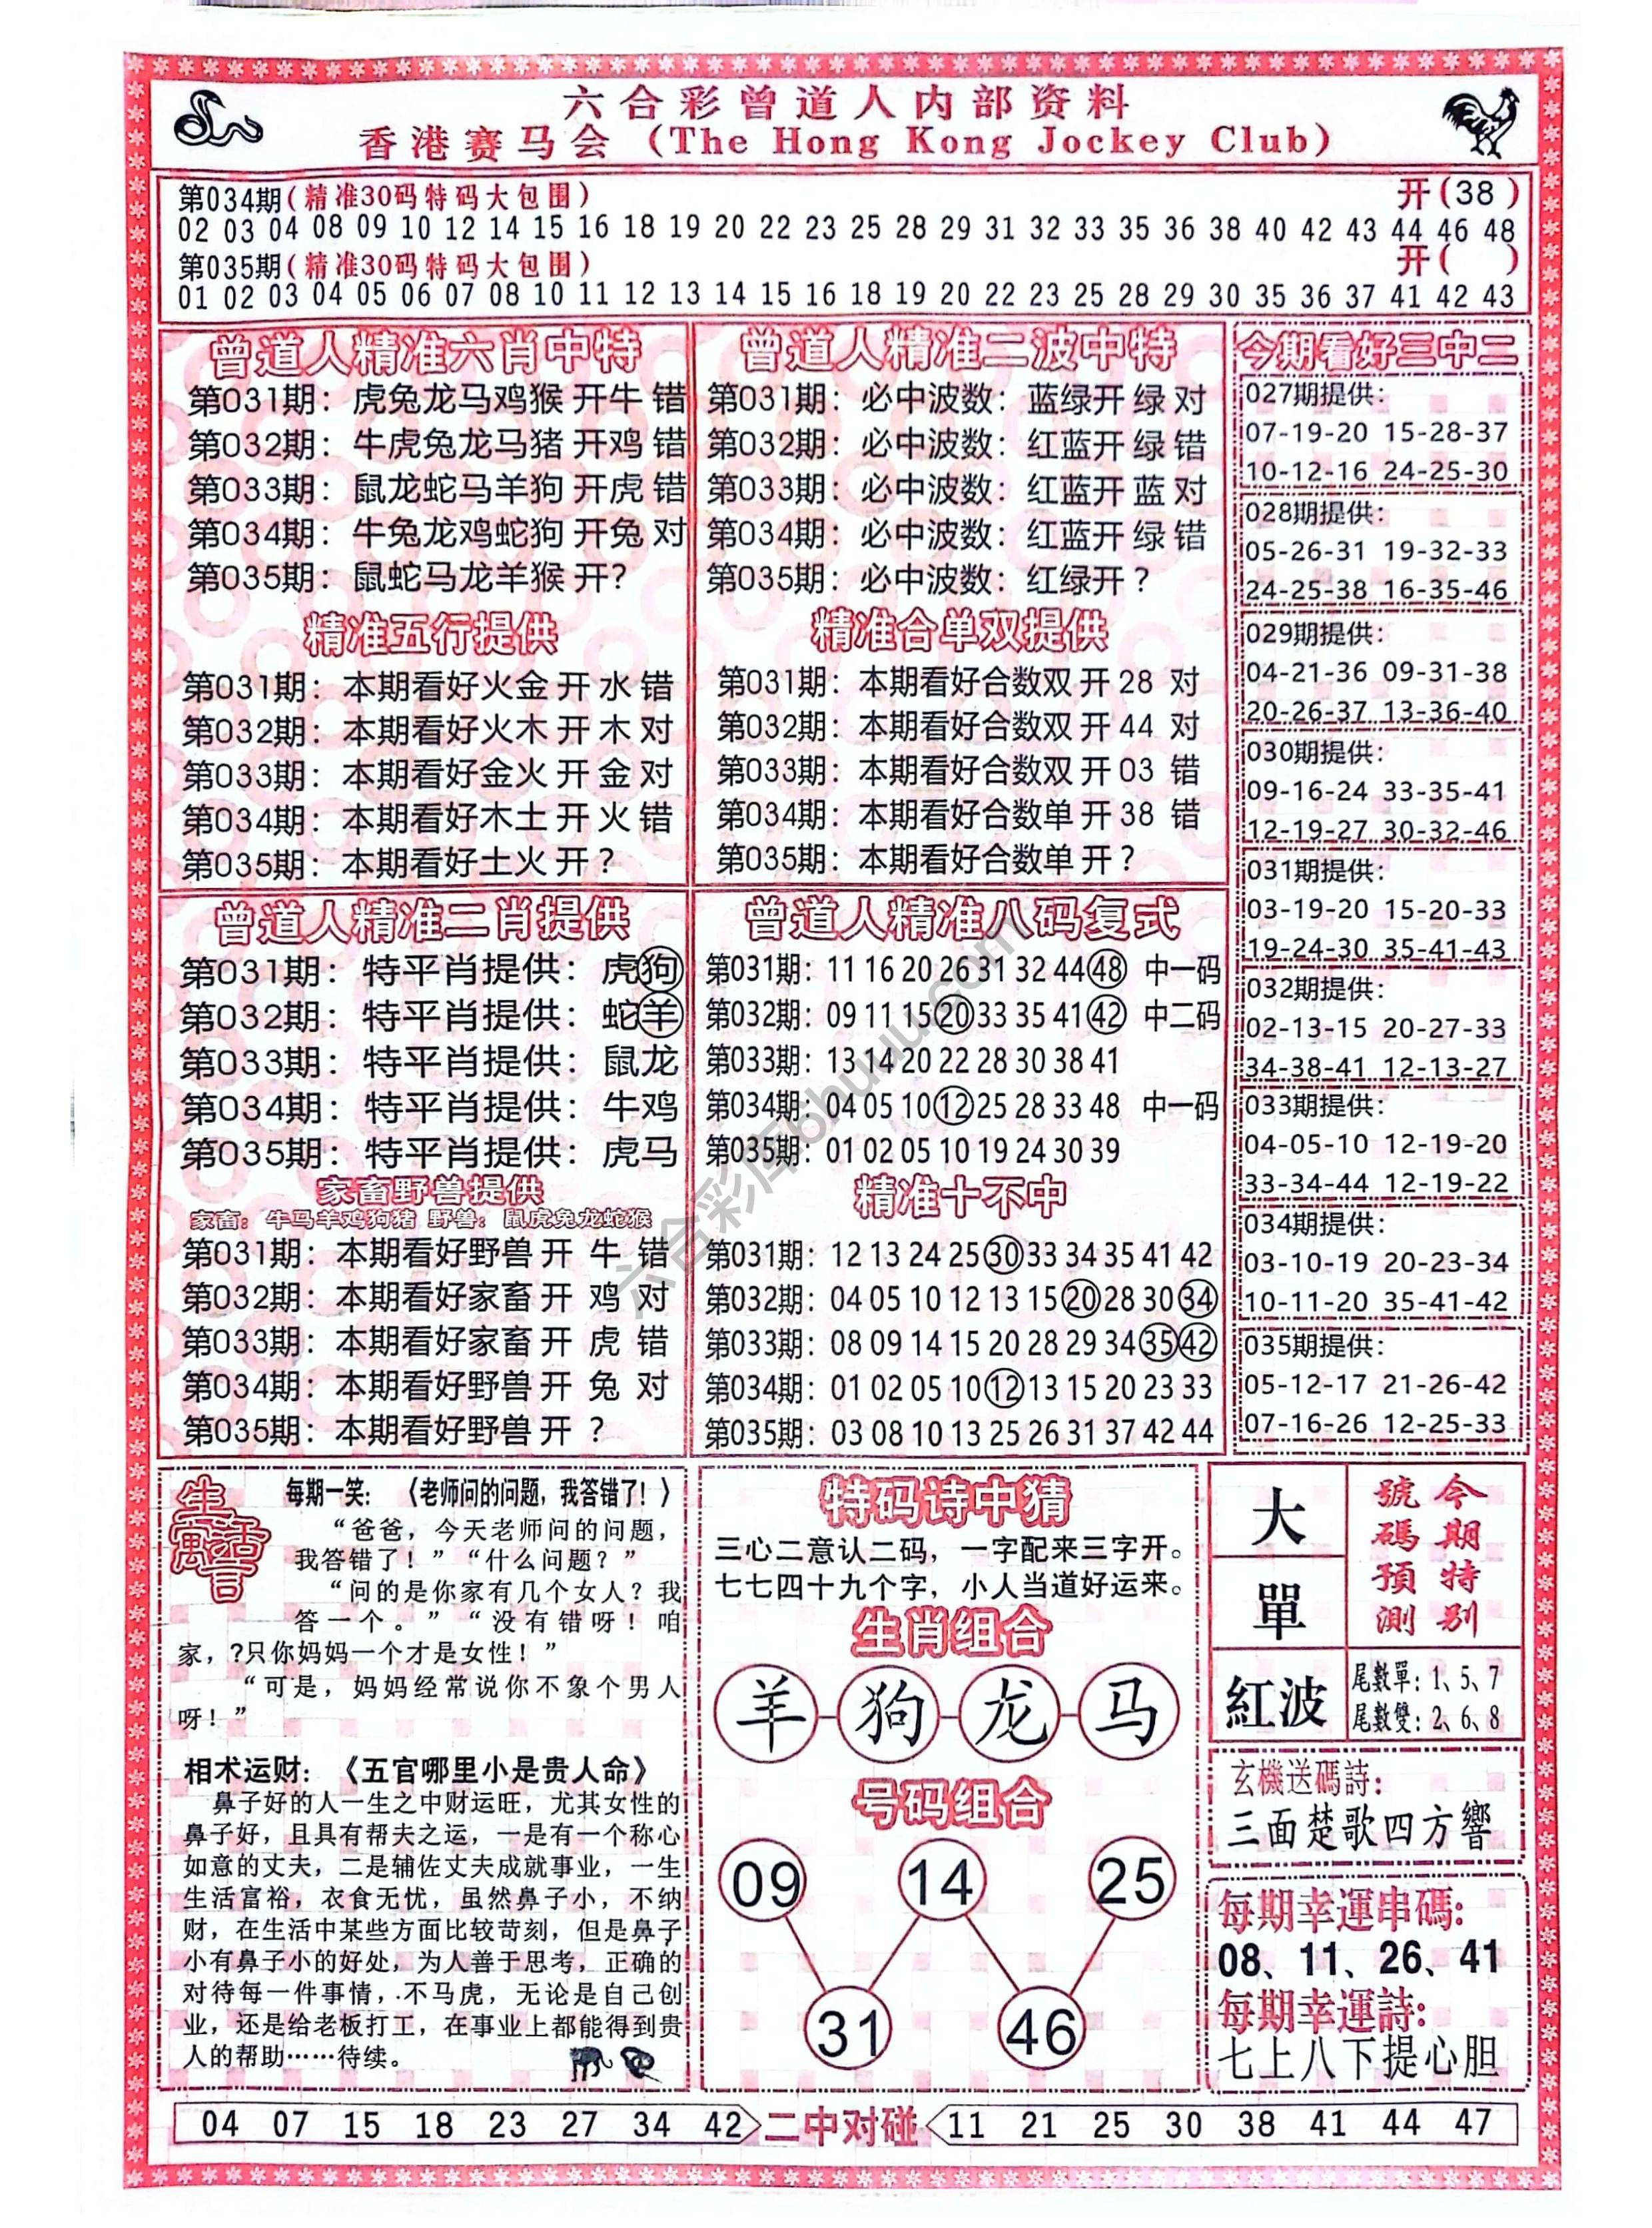 六合彩曾道人内部资料
香港赛马会 (The Hong Kong Jockey Club)
第034期(精准30码特码大包围) 开(38)
02 03 04 08 09 10 12 14 15 16 18 19 20 22 23 25 28 29 31 32 33 35 36 38 40 42 43 44 46 48
第035期(精准30码特码大包围) 开( )
01 02 03 04 05 06 07 08 10 11 12 13 14 15 16 18 19 20 22 23 25 28 29 30 35 36 37 41 42 43
曾道人精准六肖中特
第031期：虎兔龙马鸡猴 开牛 错
第032期：牛虎兔龙马猪 开鸡 错
第033期：鼠龙蛇马羊狗 开虎 错
第034期：牛兔龙鸡蛇狗 开兔 对
第035期：鼠蛇马龙羊猴 开?
精准五行提供
第031期：本期看好火金 开 水 错
第032期：本期看好火木 开 木 对
第033期：本期看好金火 开 金 对
第034期：本期看好木土 开 火 错
第035期：本期看好土火 开 ?
曾道人精准二波中特
第031期：必中波数：蓝绿开 绿 对
第032期：必中波数：红蓝开 绿 错
第033期：必中波数：红蓝开 蓝 对
第034期：必中波数：红蓝开 绿 错
第035期：必中波数：红绿开 ?
精准合单双提供
第031期：本期看好合数双 开 28 对
第032期：本期看好合数双 开 44 对
第033期：本期看好合数双 开 03 错
第034期：本期看好合数单 开 38 错
第035期：本期看好合数单 开 ?
今期看好三中二
027期提供：
07-19-20 15-28-37
10-12-16 24-25-30
028期提供：
05-26-31 19-32-33
24-25-38 16-35-46
029期提供：
04-21-36 09-31-38
20-26-37 13-36-40
030期提供：
09-16-24 33-35-41
12-19-27 30-32-46
031期提供：
03-19-20 15-20-33
19-24-30 35-41-43
032期提供：
02-13-15 20-27-33
34-38-41 12-13-27
033期提供：
04-05-10 12-19-20
33-34-44 12-19-22
034期提供：
03-10-19 20-23-34
10-11-20 35-41-42
035期提供：
05-12-17 21-26-42
07-16-26 12-25-33
曾道人精准二肖提供
第031期：特平肖提供：虎狗
第032期：特平肖提供：蛇羊
第033期：特平肖提供：鼠龙
第034期：特平肖提供：牛鸡
第035期：特平肖提供：虎马
家畜野兽提供
家畜：牛马羊鸡狗猪 野兽：鼠虎兔龙蛇猴
第031期：本期看好野兽 开 牛 错
第032期：本期看好家畜 开 鸡 对
第033期：本期看好家畜 开 虎 错
第034期：本期看好野兽 开 兔 对
第035期：本期看好野兽 开 ?
曾道人精准八码复式
第031期：11 16 20 26 31 32 44 48 中一码
第032期：09 11 15 20 33 35 41 42 中二码
第033期：13 14 20 22 28 30 38 41
第034期：04 05 10 12 25 28 33 48 中一码
第035期：01 02 05 10 19 24 30 39
精准十不中
第031期：12 13 24 25 30 33 34 35 41 42
第032期：04 05 10 12 13 15 20 28 30 34
第033期：08 09 14 15 20 28 29 34 35 42
第034期：01 02 05 10 12 13 15 20 23 33
第035期：03 08 10 13 25 26 31 37 42 44
六合彩库6huuu.com
生活寓言
每期一笑：《老师问的问题，我答错了！》
“爸爸，今天老师问的问题，
我答错了！”“什么问题？”
“问的是你家有几个女人？我
答一个。”“没有错呀！咱
家，?只你妈妈一个才是女性！”
“可是，妈妈经常说你不象个男人
呀！”
相术运财：《五官哪里小是贵人命》
鼻子好的人一生之中财运旺，尤其女性的
鼻子好，且具有帮夫之运，一是有一个称心
如意的丈夫，二是辅佐丈夫成就事业，一生
生活富裕，衣食无忧，虽然鼻子小，不纳
财，在生活中某些方面比较苛刻，但是鼻子
小有鼻子小的好处，为人善于思考，正确的
对待每一件事情，不马虎，无论是自己创
业，还是给老板打工，在事业上都能得到贵
人的帮助……待续。
特码诗中猜
三心二意认二码，一字配来三字开。
七七四十九个字，小人当道好运来。
生肖组合
羊 狗 龙 马
号码组合
09 14 25
31 46
大
單
紅波
今期特别
號碼預測
尾數單：1、5、7
尾數雙：2、6、8
玄機送碼詩：
三面楚歌四方響
每期幸運串碼：
08、11、26、41
每期幸運詩：
七上八下提心胆
04 07 15 18 23 27 34 42 二中对碰 11 21 25 30 38 41 44 47